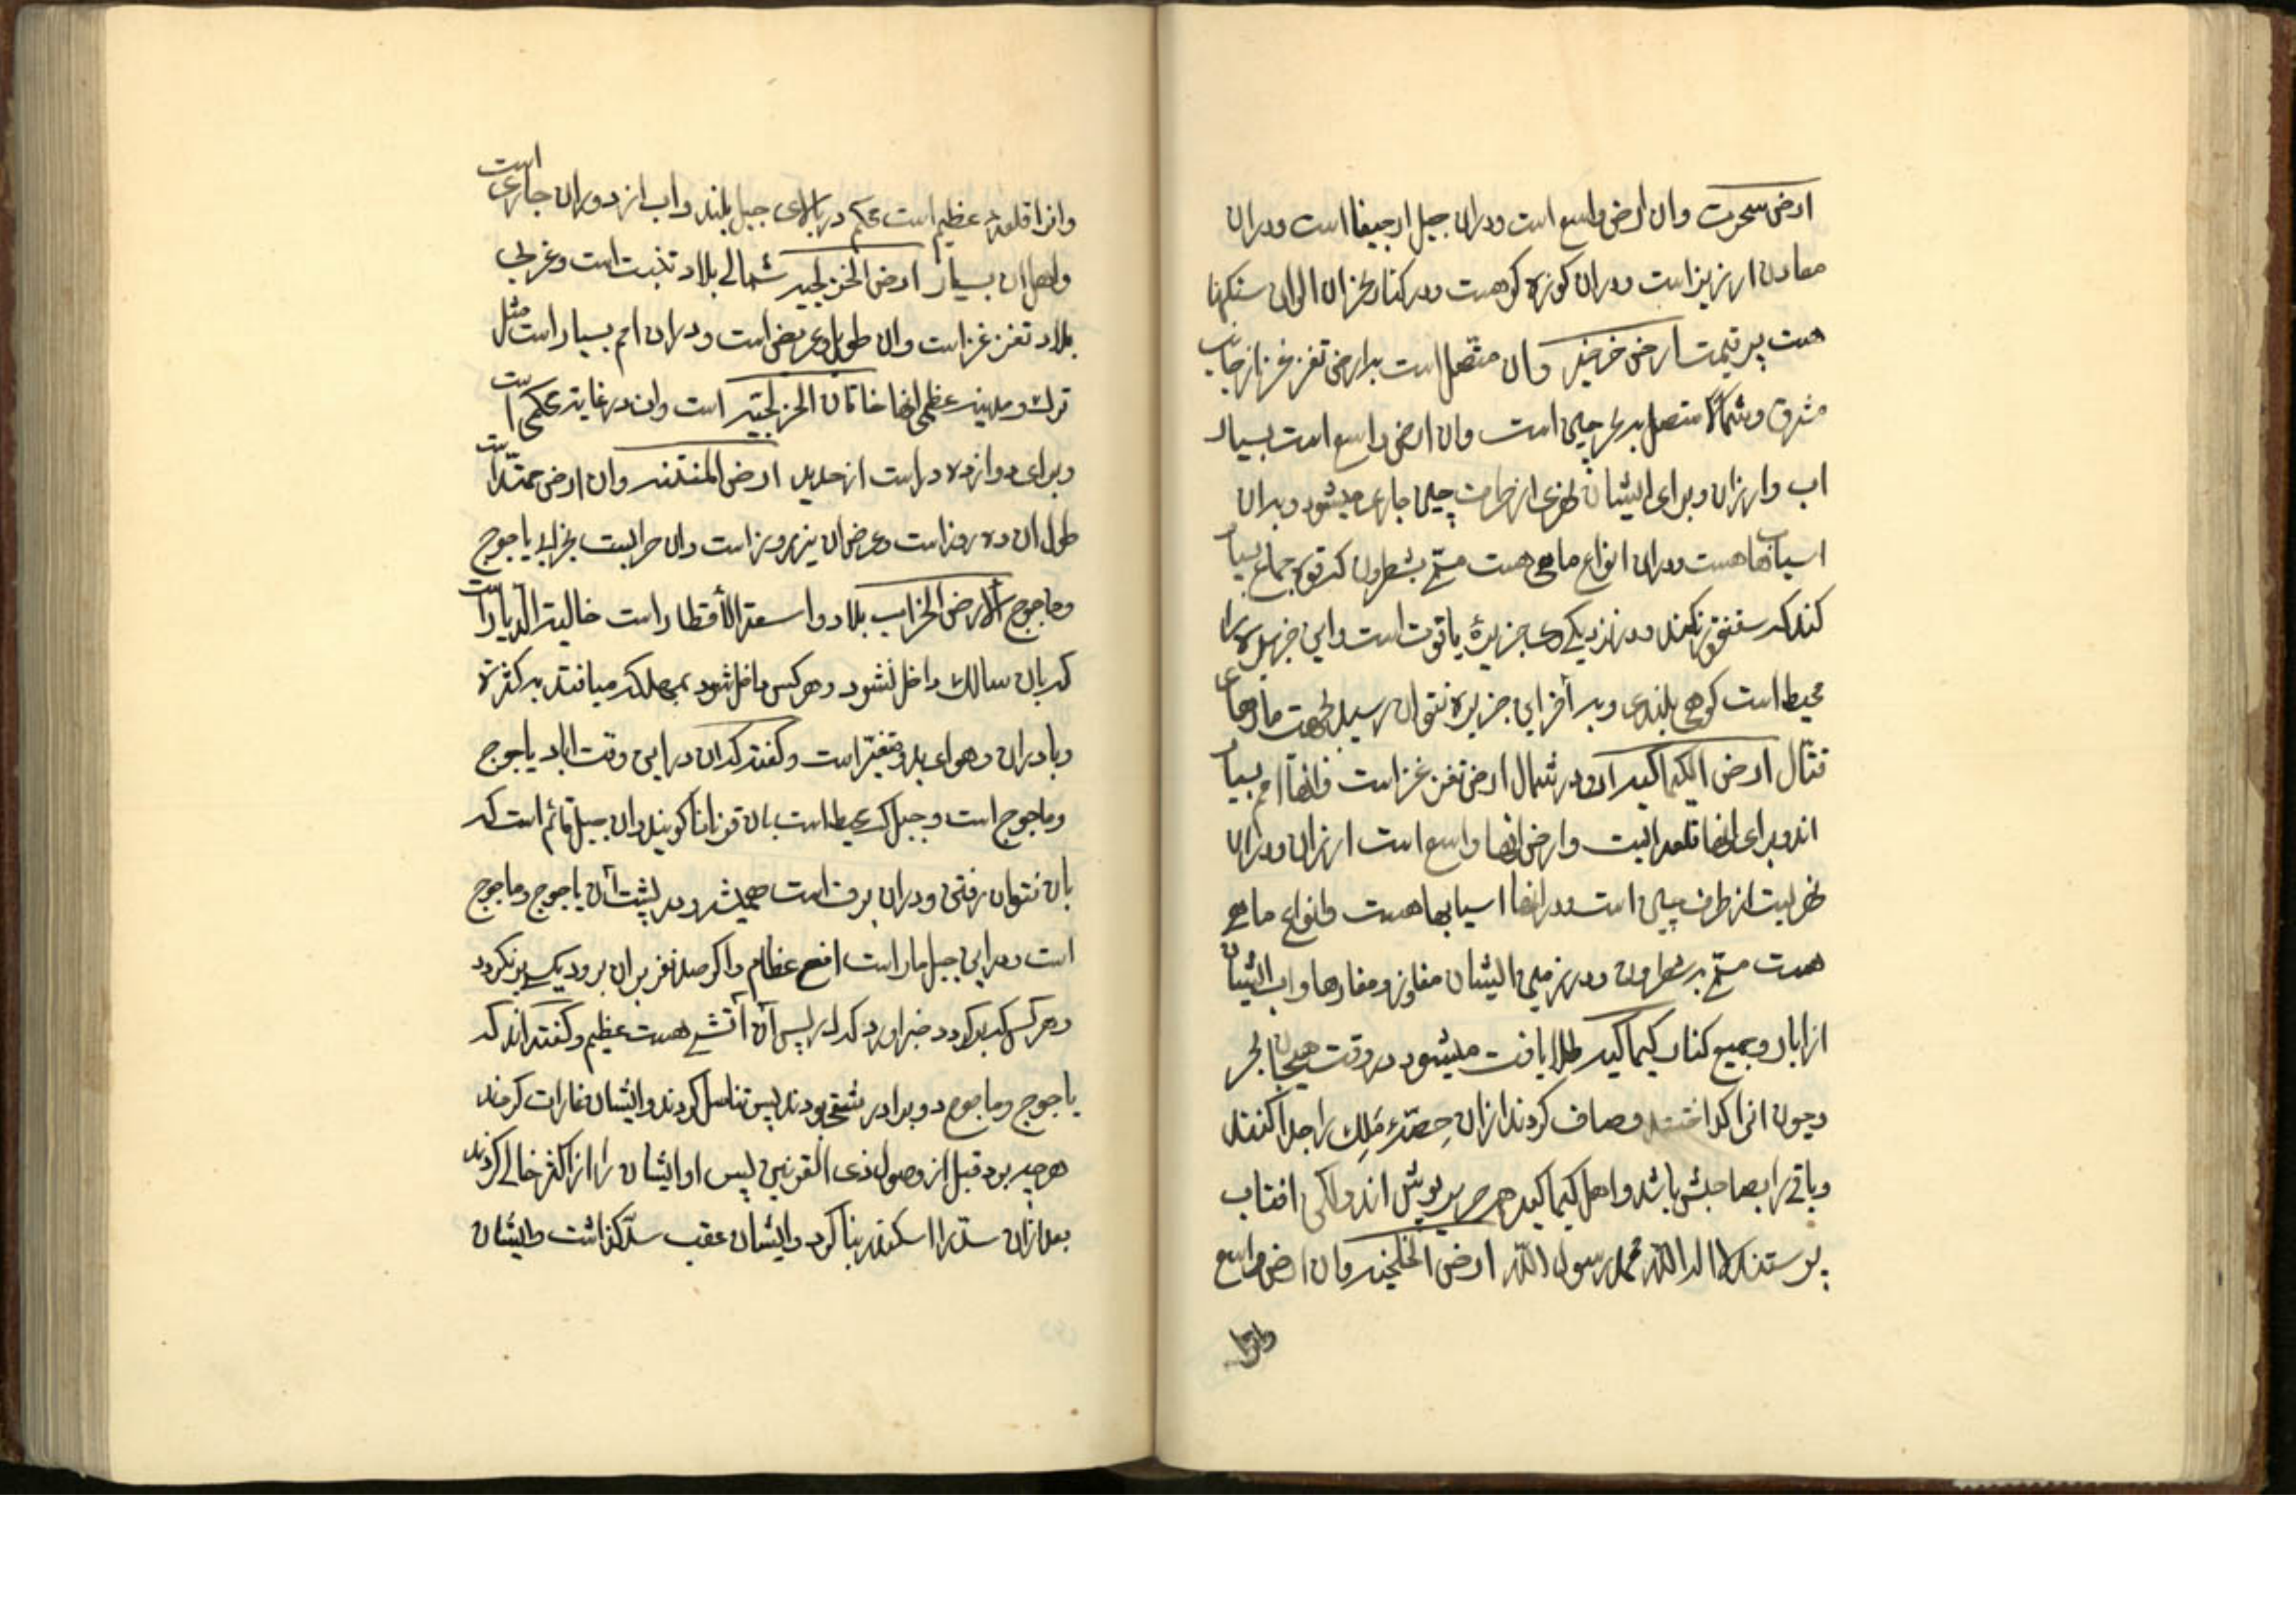 ارض سحرت وان ارض واسع است ودران جبل ارجیقا است ودران
معادن ارزیز است ودران کوزه کوهست ودر کنار بحر ان الوان سنکها
هست پر قیمت ارض خرخیز وان متصل است بدارض تغزغز از جانب
مشرق وشمالا متصل به بحر چین است وان ارض واسع است بسیار
اب وارزان وبرای ایشان نهری از طرف چین جاری میشود وبران
اسیابها هست ودران انواع ماهی هست مسمّی بشطرون که قوة جماع بسیار
کند که سقنقور نکند ودر نزدیکی جزیرهٔ یاقوت است واین جزیره را
محیط است کوهی بلندی وبه آخر این جزیره نتوان رسید بجهت مارهای
قتّال ارض الکیماکیه ان در شمال ارض تغزغز است فانها امم بسیار
اند وبرای انها قلعه ایست وارض انها واسع است ارزان ودران
نهریست از طرف چین است ودر انها اسیابها هست وانواع ماهی
هست مسمّی به شطرون ودر زمین ایشان مفاوز ومغارها واب ایشان
از ابار وجمیع کنار کیماکیه طلا یافت میشود در وقت هیجان بحر
وچون انرا کداختند وصاف کردند ازان حصّهٔ ملک را جدا کنند
وباقی را بصاحبش باشد واهل کیماکیه هر حریر پوش اند واکثر افتاب
پرستند لا اله الا الله محمد رسول الله ارض الخلخیه وان ارض واسع
وانرا
وانرا قلعهٔ عظیم است محکم در بالای جبل بلند واب از دوران جاری است
واهل ان بسیار ارض الخزلجیه شمالی بلاد تبت است وغربی
بلاد تغزغز است وان طویل وعریض است ودران امم بسیار است مثل
ترک ومدینه عظمی انها خاقان الخزلجیه است وان در غایة محکمی است
وبرای دوازده در است از حدید ارض المنتنه وان ارض ممتدّ است
طول ان ده روز است وعرض ان نیز ده روز است وان خرابیست بخرابی یاجوج
وماجوج الارض الخراب بلاد واسعة الأقطار است خالیة الدیار است
که بان سالک داخل نشود وهر کس داخل شود بمهلکه میافتد به کثرة
وبا دران وهوای بد ومتغیّر است وکفتند که ان در این وقت اباد یاجوج
وماجوج است وجبلی که محیط است بان قوزانا کویند وان جبل قائم است که
بان نتوان رفتن ودران برف است همیشه ودر پشت ان یاجوج وماجوج
است ودر این جبل مار است افعی عظام واکر صد نفر بران برود یکی برنکردد
وهر کس که برکردد خبر اورد که در پس آن آتشی هست عظیم وکفته اند که
یاجوج وماجوج دو برادر شقی بودند پس تناسل کردند وایشان غارات کردند
هر چه بود قبل از وصول ذی القرنین پس او ایشان را از اکثر خالی کردند
بعد ازان سدّ را اسکندر بنا کرد وایشان عقب سدّ کذاشت وایشان